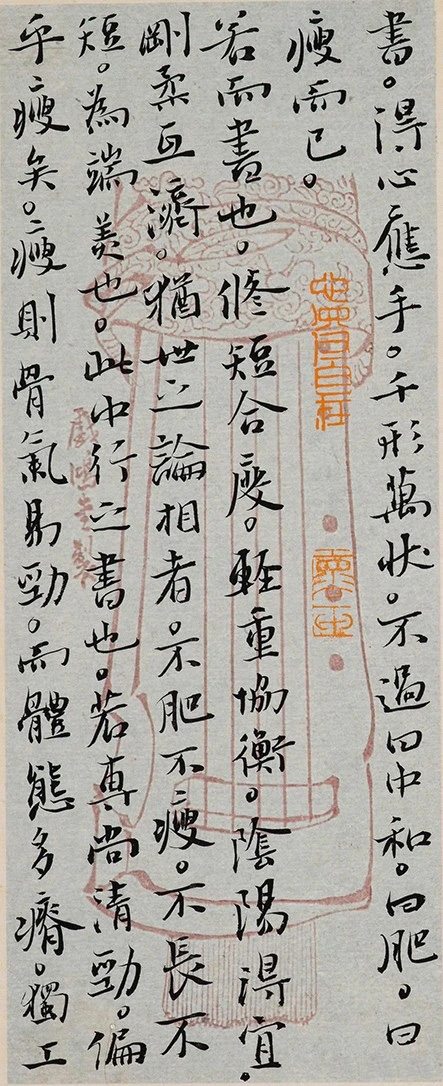 書。得心應手。千形萬狀。不過曰中和。曰肥。曰
瘦而已。
若而書也。修短合度。輕重協衡。陰陽得宜。
剛柔互濟。猶世之論相者。不肥不瘦。不長不
短。為端美也。此中行之書也。若專尚清勁。偏
乎瘦矣。瘦則骨氣易勁。而體態多瘠。獨工
戲鴻堂製